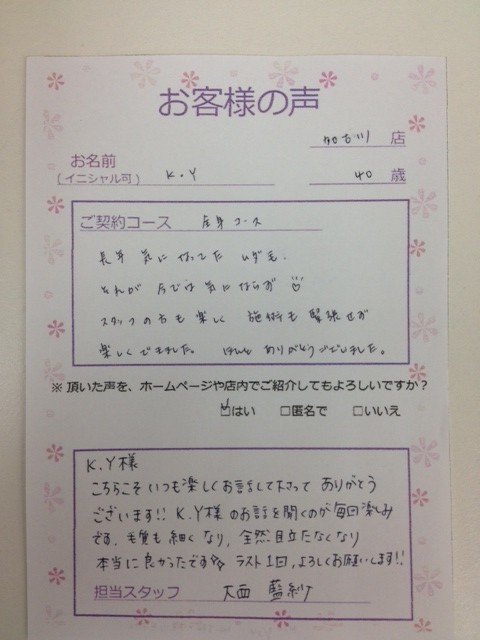 お客様の声
加古川 店
お名前
(イニシャル可) K.Y 40 歳
ご契約コース 全身コース
長年 気になってた ムダ毛。
それが 今では 気にならず
スタッフの方も 楽しく 施術も 緊張せず
楽しくできました。 ほんと ありがとうございました。
※頂いた声を、ホームページや店内でご紹介してもよろしいですか?
☑はい □匿名で □いいえ
K.Y様
こちらこそ いつも楽しくお話して下さって ありがとう
ございます!! K.Y様 のお話を聞くのが毎回楽しみ
です。毛質も 細くなり、全然目立たなくなり
本当に良かったです☆ ラスト1回、よろしくお願いします!!
担当スタッフ 大西 藍